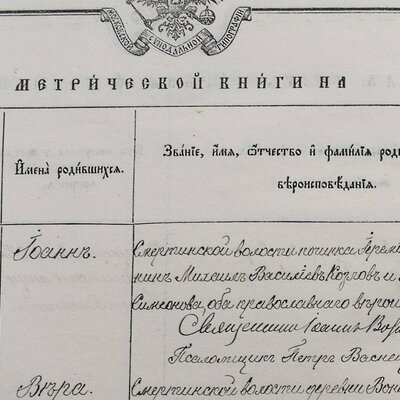 МОСКОВСКОЙ СѴНОДАЛЬНОЙ ТИПОГРАФІИ
МЕТРИ́ЧЕСКОЙ КНИ́ГИ НА
И҆мена̀ роди́вшихся.
Зва́нїе, и҆́мя, ѻ҆́тчество и҆ фами́лїя
вѣроисповѣ́данїя.
Іоаннъ.
Смертинской волости починка
нинъ Михаилъ Васильевъ Козловъ и
Симеонова, оба православнаго
Священникъ Іоаннъ
Псаломщикъ Петръ
Вѣра.
Смертинской волости деревни